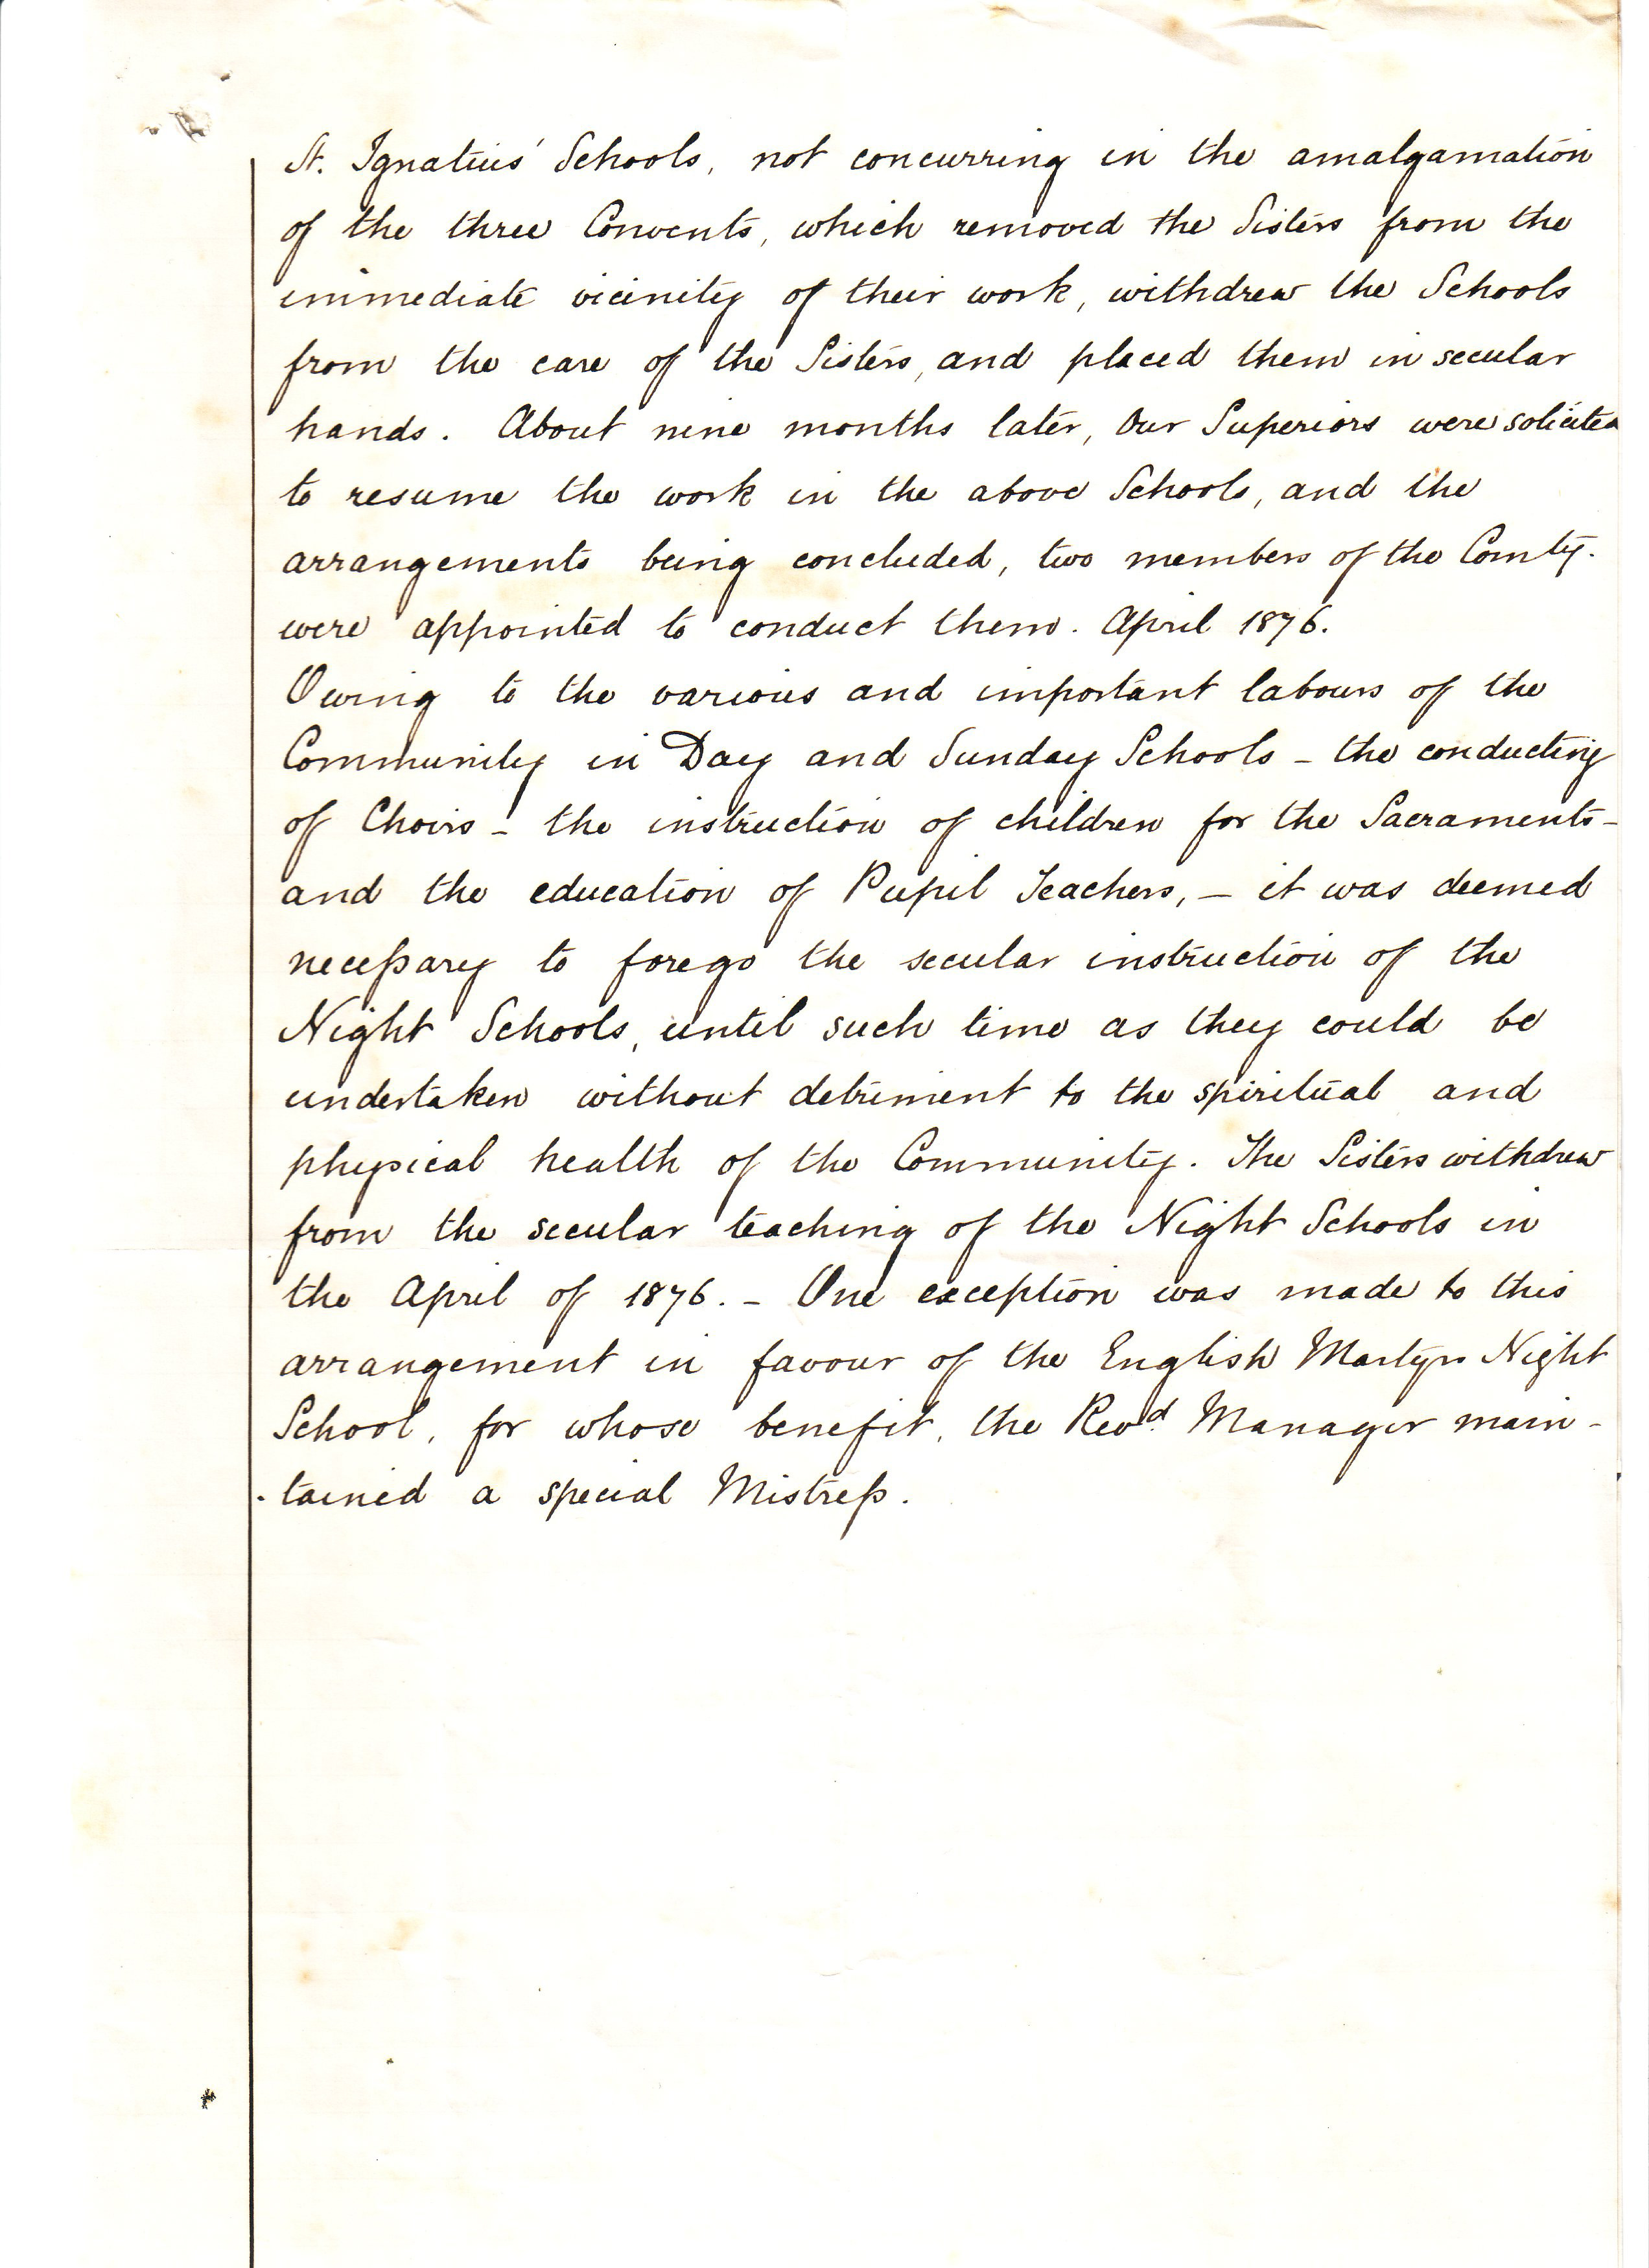 St. Ignatius' Schools, not concurring in the amalgamation
of the three Convents, which removed the Sisters from the
immediate vicinity of their work, withdrew the Schools
from the care of the Sisters, and placed them in secular
hands. About nine months later, Our Superiors were solicited
to resume the work in the above Schools, and the
arrangements being concluded, two members of the Comty.
were appointed to conduct them. April 1876.
Owing to the various and important labours of the
Community in Day and Sunday Schools – the conducting
of Choirs – the instruction of children for the Sacraments –
and the education of Pupil Teachers, – it was deemed
neceſsary to forego the secular instruction of the
Night Schools, until such time as they could be
undertaken without detriment to the spiritual and
physical health of the Community. The Sisters withdrew
from the secular teaching of the Night Schools in
the April of 1876. – One exception was made to this
arrangement in favour of the English Martyrs Night
School, for whose benefit, the Revd. Manager main-
-tained a special Mistreſs.